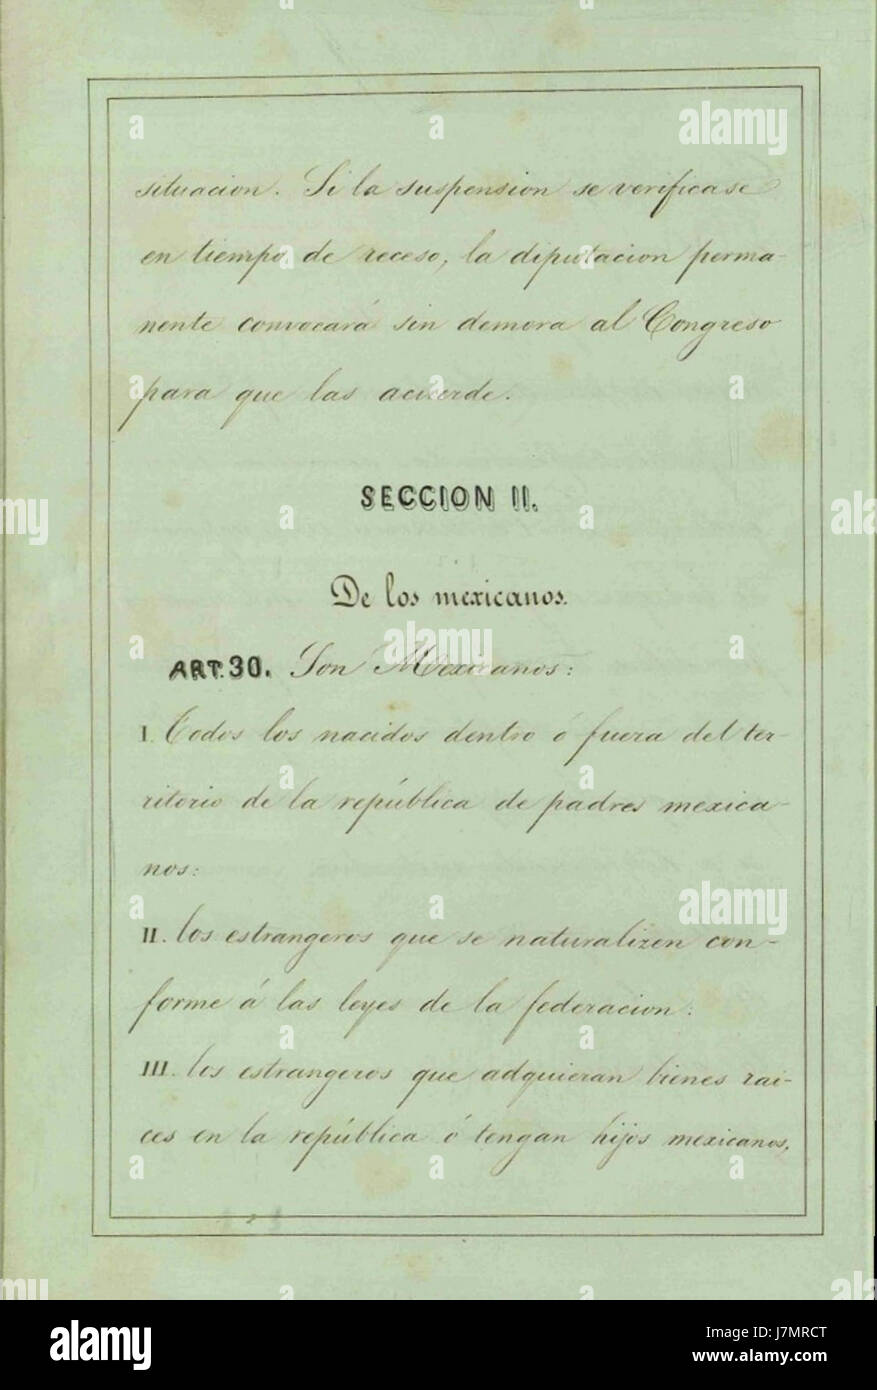 situacion. Si la suspension se verificase
en tiempo de receso, la diputacion perma-
nente convocará sin demora al Congreso
para que las acuerde.
SECCION II.
De los mexicanos.
ART. 30. Son Mexicanos:
I. Todos los nacidos dentro ó fuera del ter-
ritorio de la república de padres mexica-
nos:
II. Los estrangeros que se naturalizen con-
forme á las leyes de la federacion:
III. Los estrangeros que adquieran bienes rai-
ces en la república ó tengan hijos mexicanos,
alamy
Image ID: J7MRCT
www.alamy.com